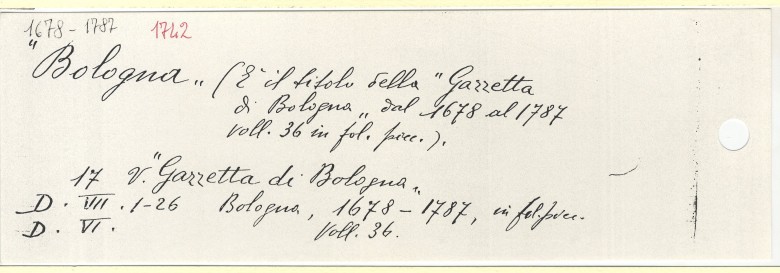 1678 - 1787 1742
"Bologna„ (È il titolo della "Gazzetta
di Bologna„ dal 1678 al 1787
voll. 36 in fol. picc.).
17 V. "Gazzetta di Bologna„
D. VIII. 1-26 Bologna, 1678 - 1787, in fol. picc.
D. VI. Voll. 36.